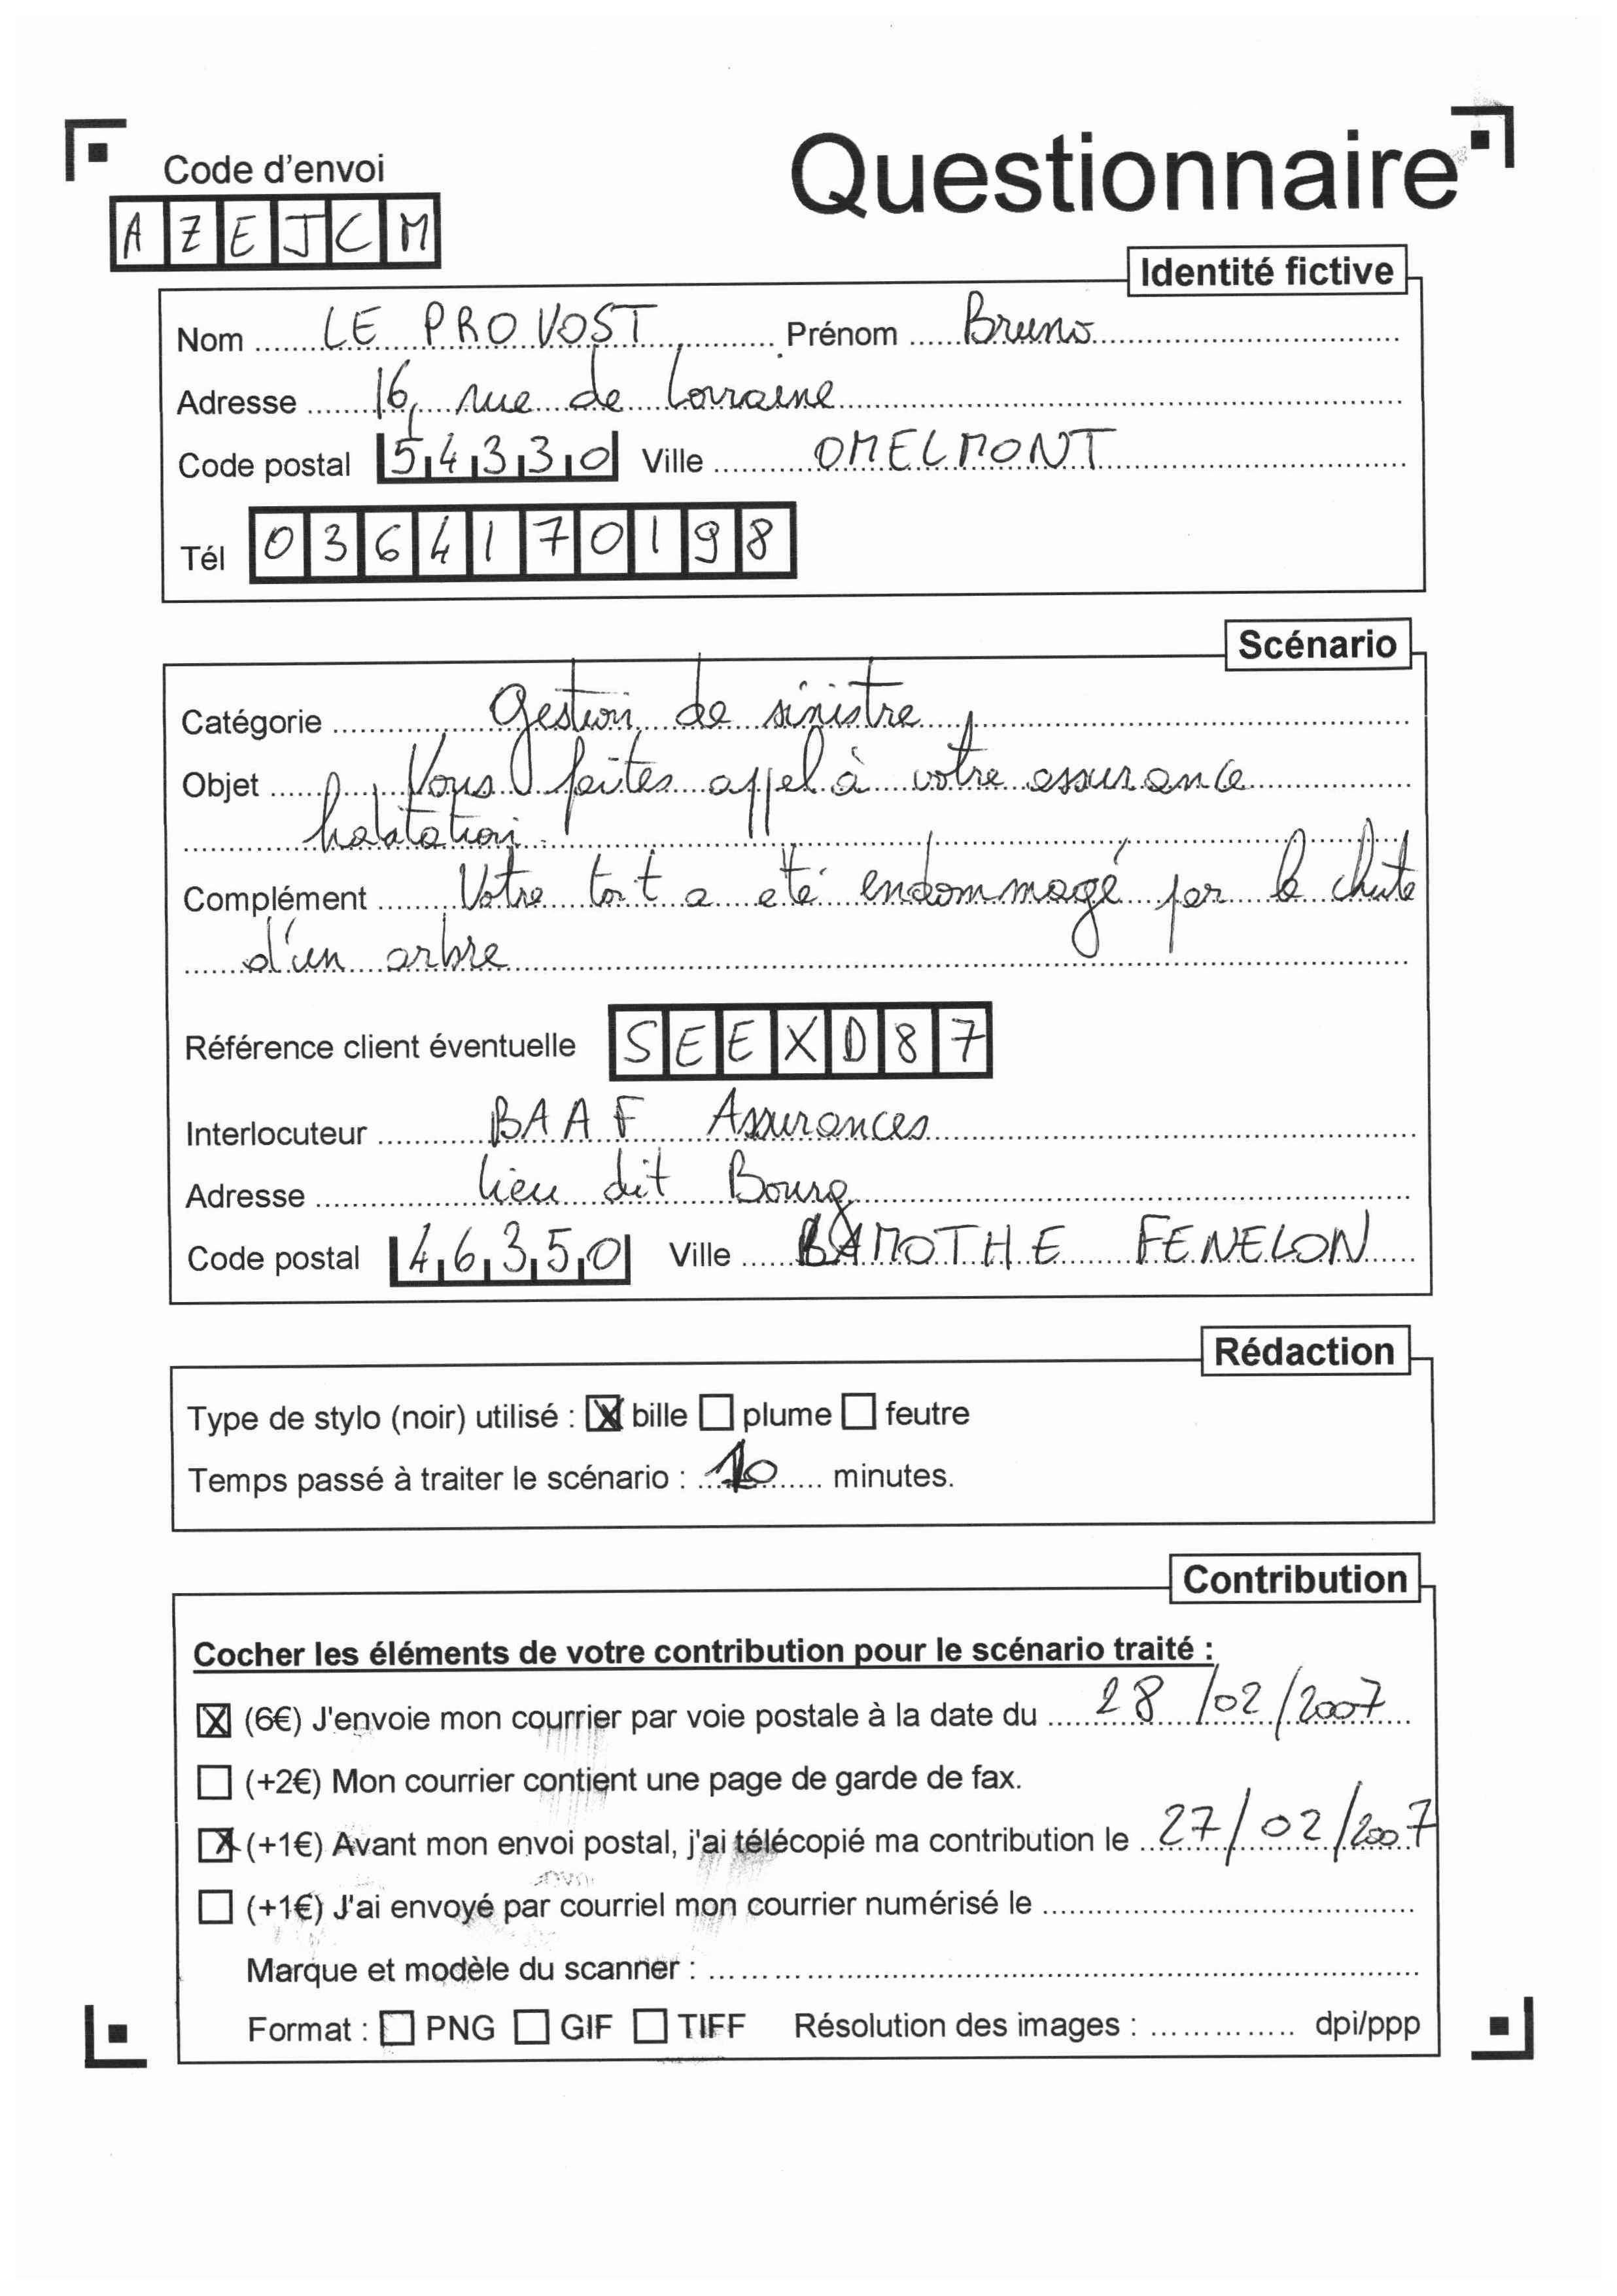 Questionnaire
Code d'envoi
AZEJCM
Identité fictive
Nom LE PROVOST Prénom Bruno
Adresse 16, rue de Lorraine
Code postal 54330 Ville OMELMONT
Tél 0364170198
Scénario
Catégorie Gestion de sinistre
Objet Vous faites appel à votre assurance
habitation.
Complément Votre toit a été endommagé par la chute
d'un arbre
Référence client éventuelle SEEXD87
Interlocuteur BAAF Assurances
Adresse lieu dit Bourg
Code postal 46350 Ville LAMOTHE FENELON
Rédaction
Type de stylo (noir) utilisé : ☒ bille ☐ plume ☐ feutre
Temps passé à traiter le scénario : 10 minutes.
Contribution
Cocher les éléments de votre contribution pour le scénario traité :
☒ (6€) J'envoie mon courrier par voie postale à la date du 28/02/2007
☐ (+2€) Mon courrier contient une page de garde de fax.
☒ (+1€) Avant mon envoi postal, j'ai télécopié ma contribution le 27/02/2007
☐ (+1€) J'ai envoyé par courriel mon courrier numérisé le
Marque et modèle du scanner :
Format : ☐ PNG ☐ GIF ☐ TIFF Résolution des images : dpi/ppp